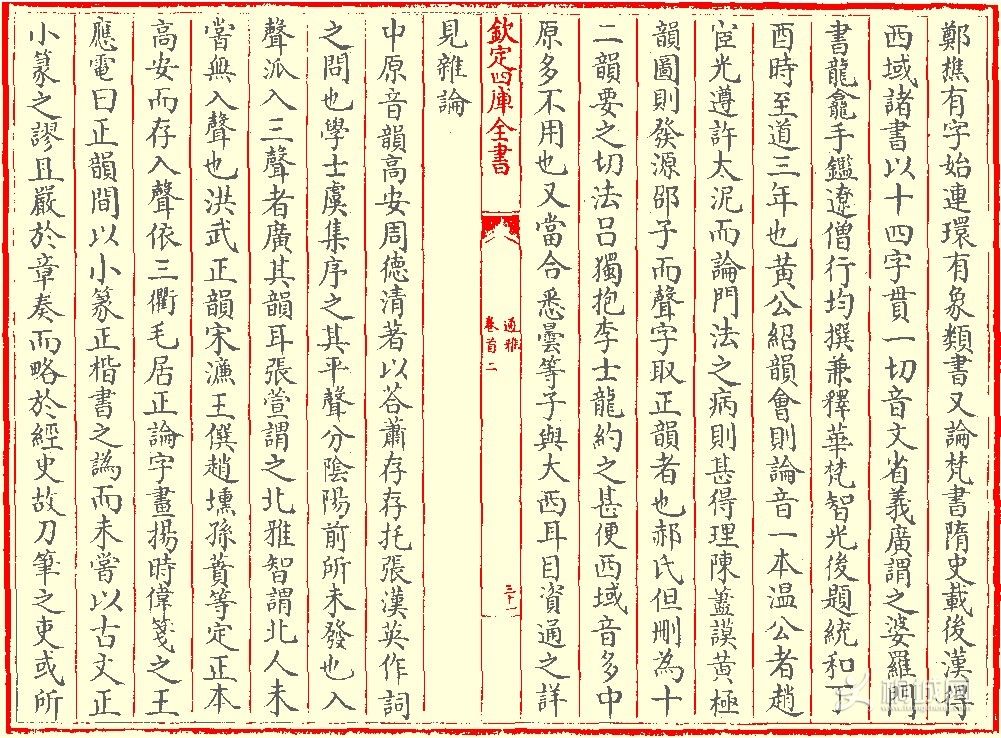 鄭樵有字始連環有象類書又論梵書隋史載後漢得
西域諸書以十四字貫一切音文省義廣謂之婆羅門
書龍龕手鑑遼僧行均撰兼釋華梵智光後題統和丁
酉時至道三年也黃公紹韻會則論音一本溫公者趙
宦光遵許太泥而論門法之病則甚得理陳藎謨黃極
韻圖則發源邵子而聲字取正韻者也郝氏但刪為十
二韻要之切法呂獨抱李士龍約之甚便西域音多中
原多不用也又當合悉曇等子與大西耳目資通之詳
欽定四庫全書
通雅
卷首二
三十一
見雜論
中原音韻高安周德清著以荅蕭存存托張漢英作詞
之問也學士虞集序之其平聲分陰陽前所未發也入
聲泒入三聲者廣其韻耳張萱謂之北雅智謂北人未
嘗無入聲也洪武正韻宋濂王僎趙壎孫蕡等定正本
高安而存入聲依三衢毛居正論字畫揚時偉箋之王
應電曰正韻間以小篆正楷書之譌而未嘗以古文正
小篆之謬且嚴於章奏而略於經史故刀筆之吏或所